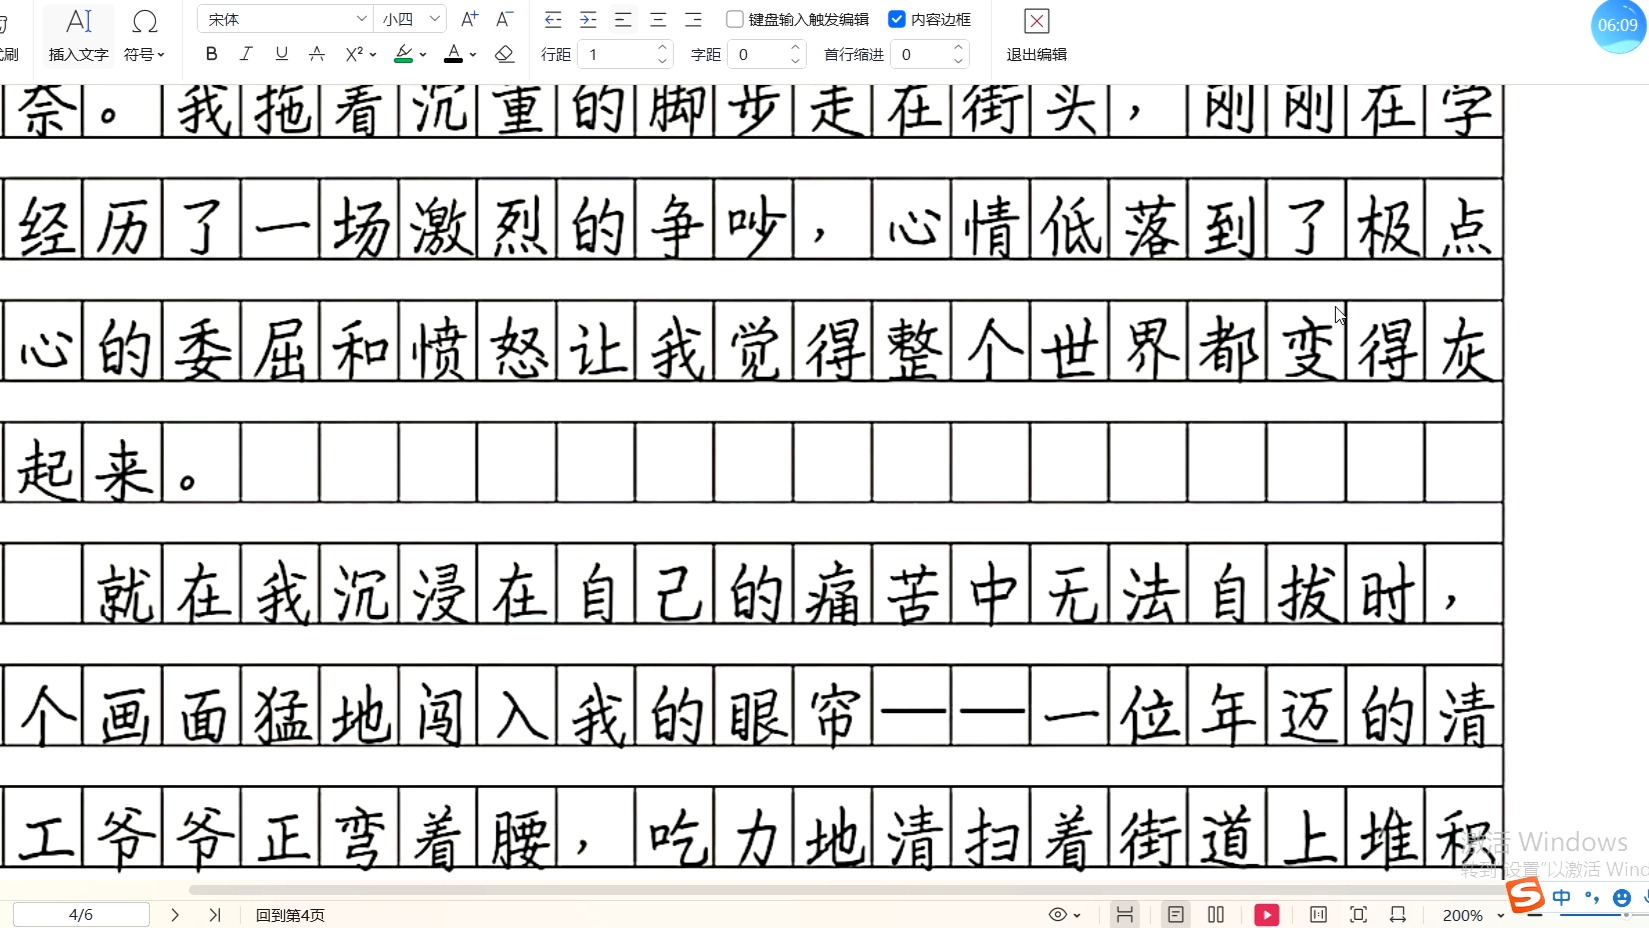 插入文字 符号 宋体 小四 A+ A- 键盘输入触发编辑 内容边框 退出编辑 06:09
刷 B I U A X² A 行距 1 字距 0 首行缩进 0
奈。我拖着沉重的脚步走在街头，刚刚在学
经历了一场激烈的争吵，心情低落到了极点
心的委屈和愤怒让我觉得整个世界都变得灰
起来。
就在我沉浸在自己的痛苦中无法自拔时，
个画面猛地闯入我的眼帘——一位年迈的清
工爷爷正弯着腰，吃力地清扫着街道上堆积
激活 Windows
转到"设置"以激活 Wind
中
4/6 回到第4页 200%